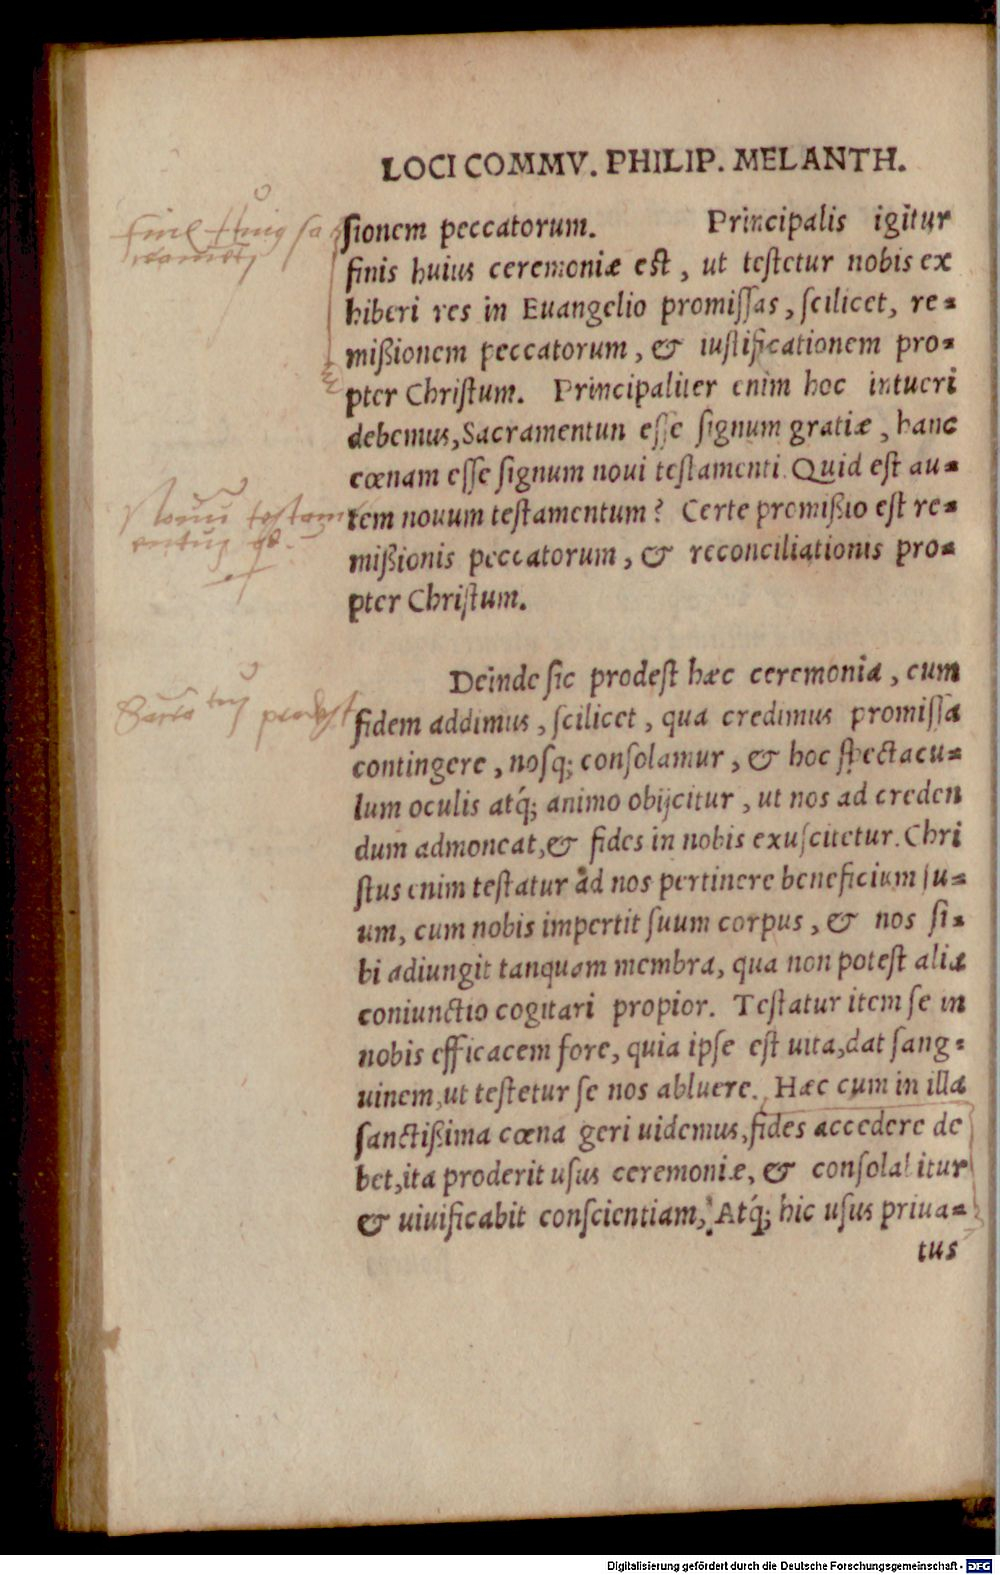 LOCI COMMV. PHILIP. MELANTH.
ſionem peccatorum. Principalis igitur
finis huius ceremoniæ est, ut teſtetur nobis ex
hiberi res in Euangelio promiſſas, ſcilicet, re-
mißionem peccatorum, & iuſtificationem pro-
pter Chriſtum. Principaliter enim hoc intueri
debemus, Sacramentun eſſe ſignum gratiæ, hanc
cœnam eſſe ſignum noui teſtamenti. Quid eſt au-
tem nouum teſtamentum? Certe promißio eſt re-
mißionis peccatorum, & reconciliationis pro-
pter Chriſtum.
Deinde ſic prodeſt hæc ceremonia, cum
fidem addimus, ſcilicet, qua credimus promiſſa
contingere, noſq; conſolamur, & hoc ſpectacu-
lum oculis atq́; animo obijcitur, ut nos ad creden
dum admoneat, & fides in nobis exuſcitetur. Chri
ſtus enim teſtatur ad nos pertinere beneficium ſu-
um, cum nobis impertit ſuum corpus, & nos ſi-
bi adiungit tanquam membra, qua non poteſt alia
coniunctio cogitari propior. Teſtatur item ſe in
nobis efficacem fore, quia ipſe eſt uita, dat ſang-
uinem, ut teſtetur ſe nos abluere. Hæc cum in illa
ſanctißima cœna geri uidemus, fides accedere de
bet, ita proderit uſus ceremoniæ, & conſolabitur
& uiuificabit conſcientiam, Atq́; hic uſus priua-
tus
Nouu testam
prodest
Digitalisierung gefördert durch die Deutsche Forschungsgemeinschaft - DFG